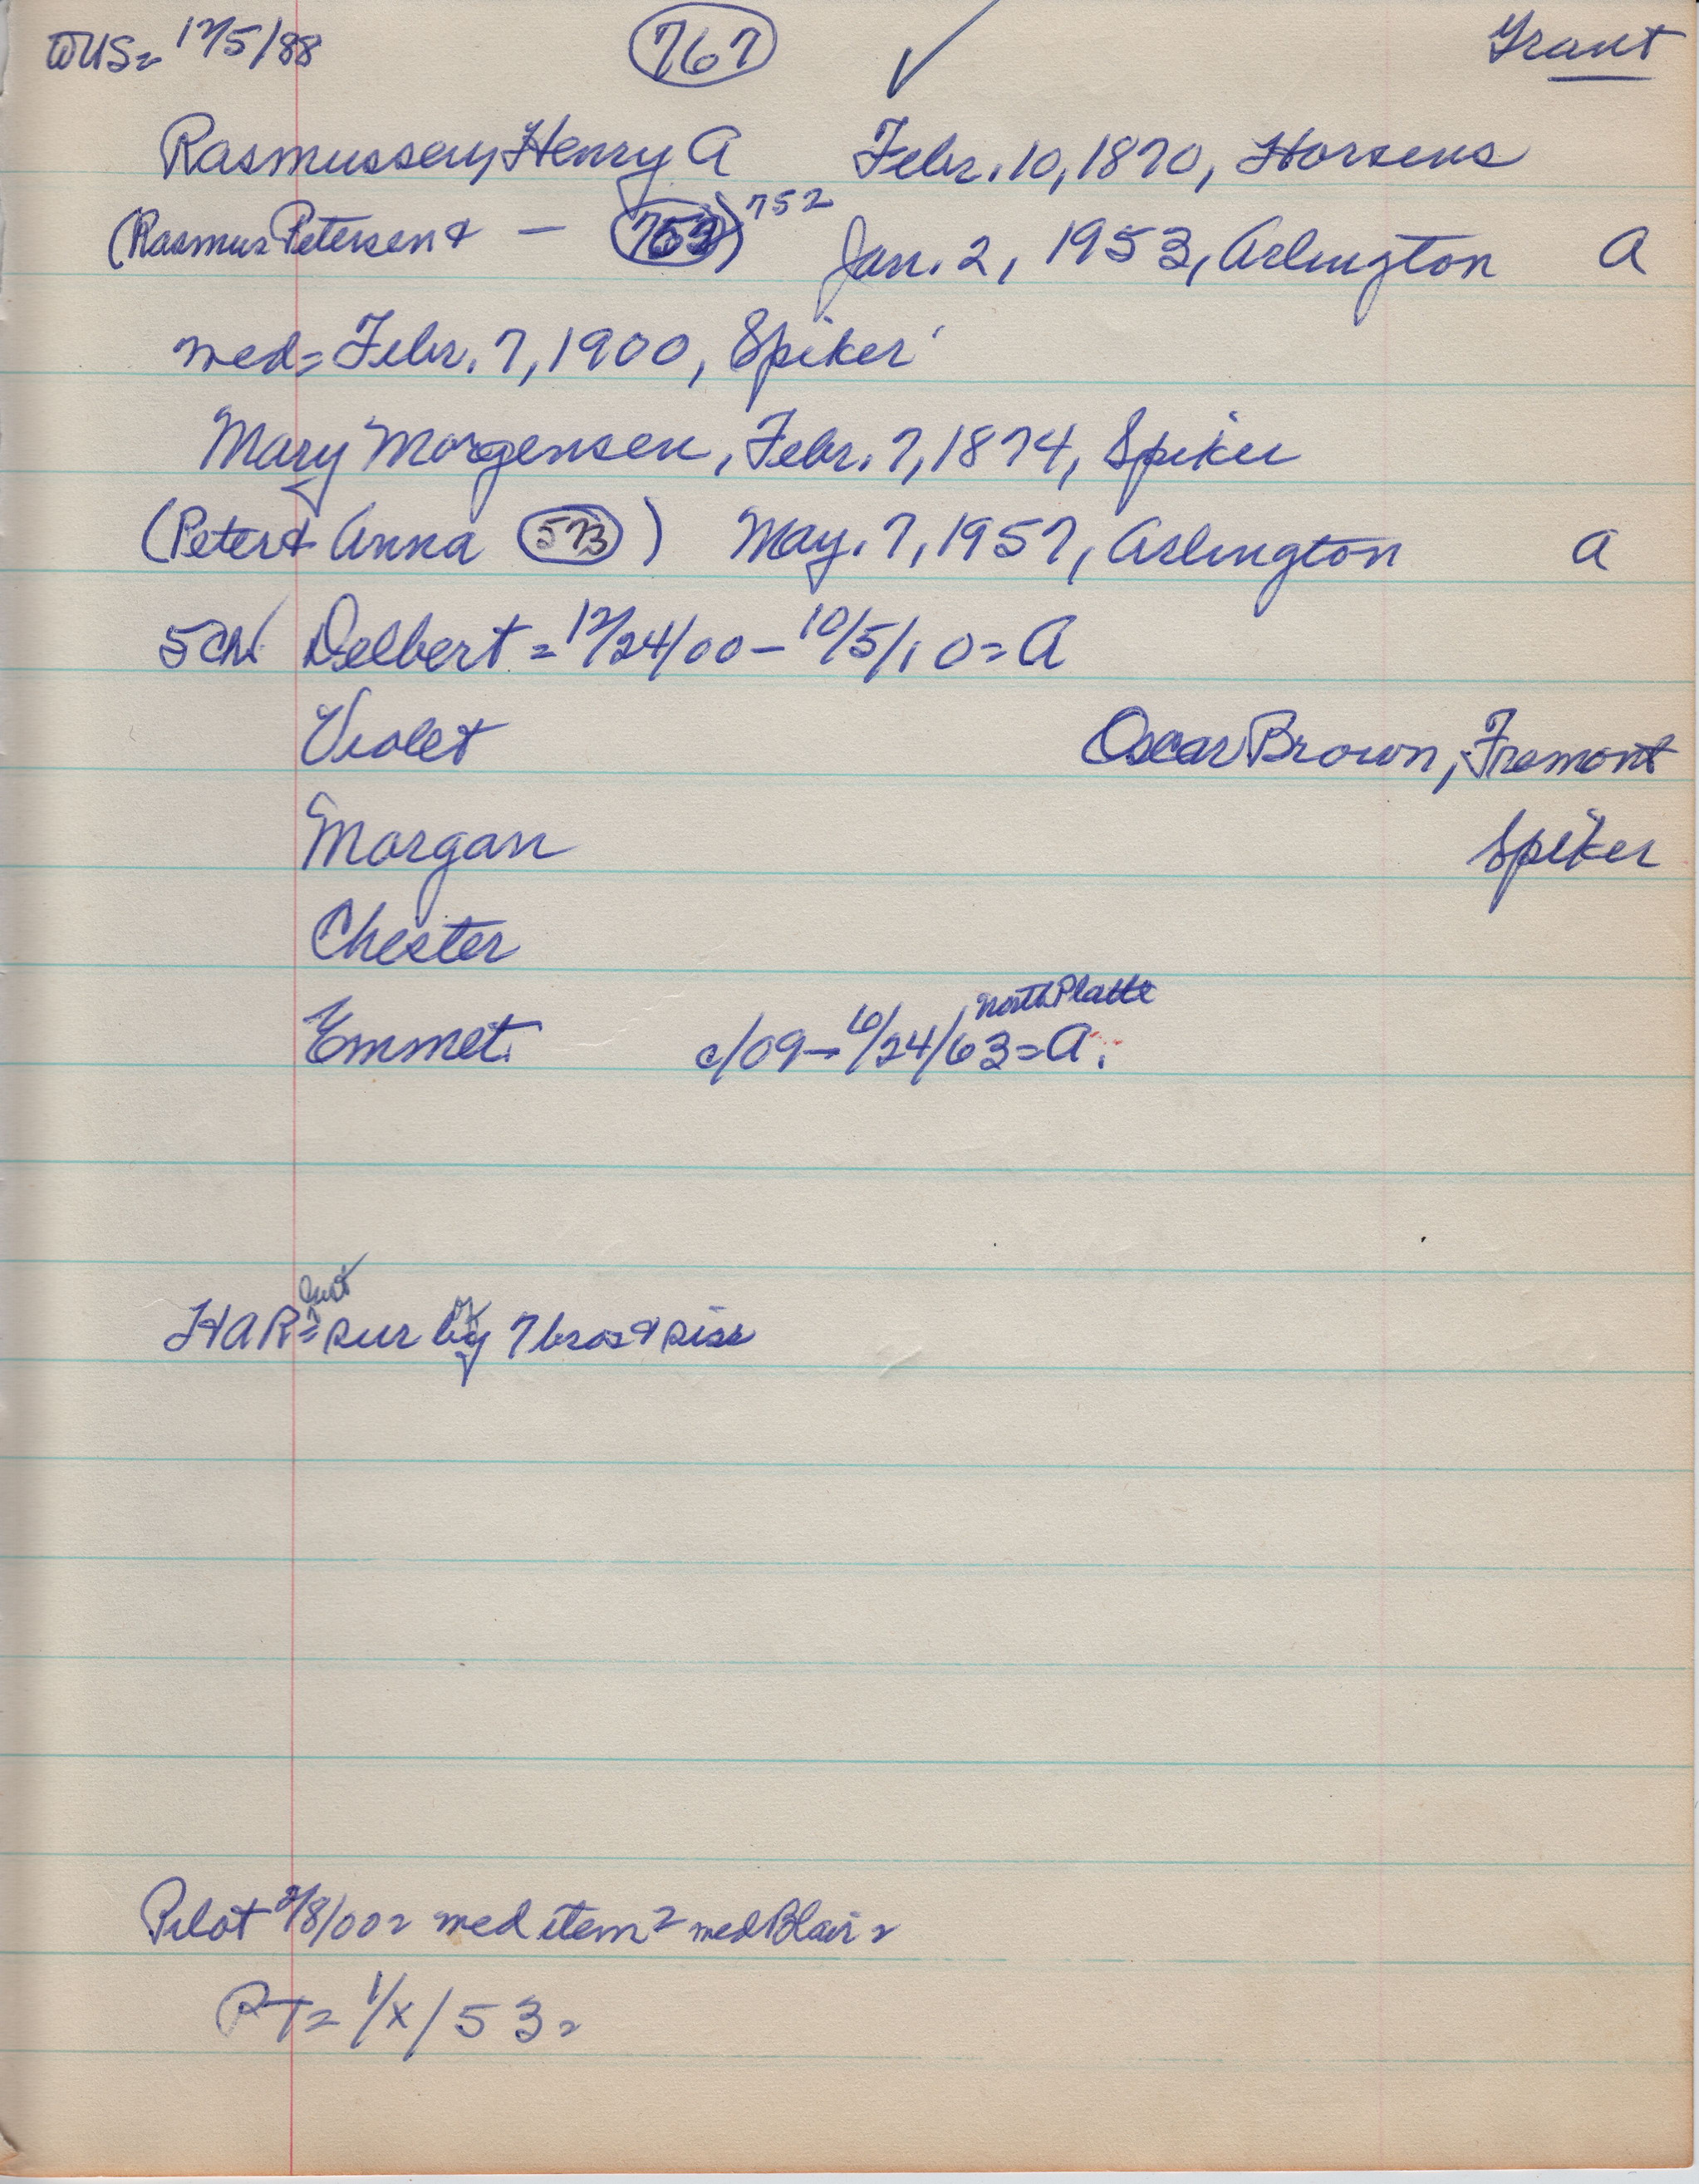 WUS= 12/5/88 767 ✓ Grant
Rasmussen, Henry A Febr. 10, 1870, Horsens
(Rasmus Petersen & — 753) 752 Jan. 2, 1953, Arlington A
med= Febr. 7, 1900, Spiker
Mary Morgensen, Febr. 7, 1874, Spiker
(Peter & Anna 573) May. 7, 1957, Arlington A
5 Ch Delbert = 12/24/00 - 10/5/10 = A
Violet Oscar Brown, Fremont
Morgan Spiker
Chester
North Platte
Emmet c/09 - 6/24/63 = A.
HAR = sur by 7 bros & siss
Pilot 2/8/00= med item= med Blair=
RT= 1/x/53=